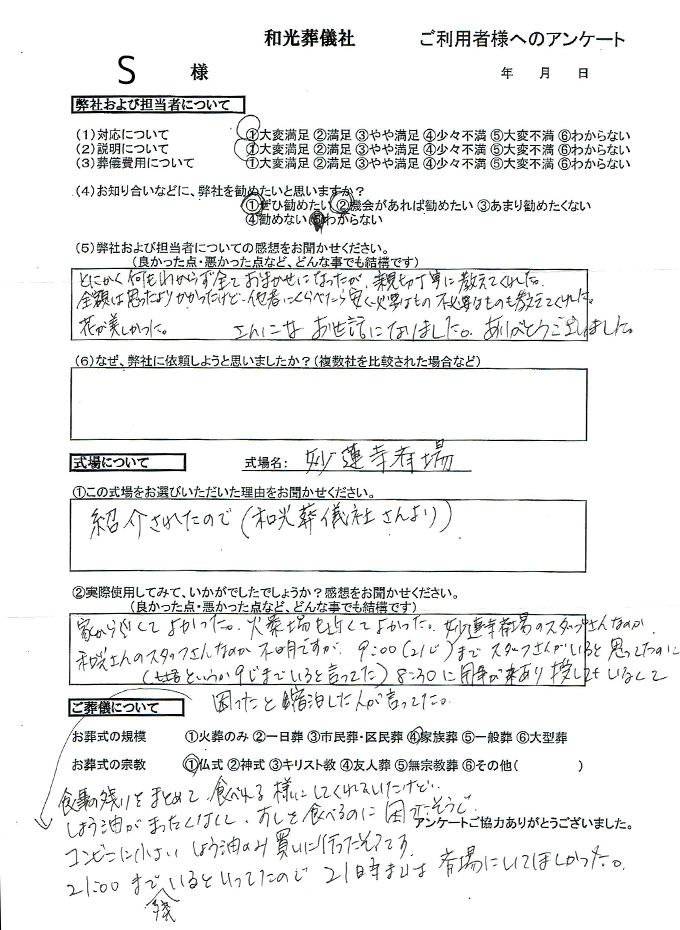 和光葬儀社 ご利用者様へのアンケート
S 様 年 月 日
弊社および担当者について
(1)対応について ①大変満足 ②満足 ③やや満足 ④少々不満 ⑤大変不満 ⑥わからない
(2)説明について ①大変満足 ②満足 ③やや満足 ④少々不満 ⑤大変不満 ⑥わからない
(3)葬儀費用について ①大変満足 ②満足 ③やや満足 ④少々不満 ⑤大変不満 ⑥わからない
(4)お知り合いなどに、弊社を勧めたいと思いますか?
①ぜひ勧めたい ②機会があれば勧めたい ③あまり勧めたくない
④勧めない ⑤わからない
(5)弊社および担当者についての感想をお聞かせください。
(良かった点・悪かった点など、どんな事でも結構です)
とにかく何もわからず全ておまかせになったが、親切丁寧に教えてくれた。
金額は思ったよりかかったけど、他者にくらべたら安く、必要なもの 不必要なものも教えてくれた。
花が美しかった。 お世話になりました。ありがとうございました。
(6)なぜ、弊社に依頼しようと思いましたか?(複数社を比較された場合など)
式場について 式場名: 妙蓮寺斎場
①この式場をお選びいただいた理由をお聞かせください。
紹介されたので(和光葬儀社さんより)
②実際使用してみて、いかがでしたでしょうか?感想をお聞かせください。
(良かった点・悪かった点など、どんな事でも結構です)
家から近くてよかった。火葬場も近くてよかった。妙蓮寺斎場のスタッフさんなのか、
和光さんのスタッフさんなのか不明ですが、9:00(21じ)までスタッフさんがいると思ってたのに
(というか9じまでいると言ってた) 8:30に用事が来あり 探してもいなくて
困ったと宿泊した人が言ってた。
ご葬儀について
お葬式の規模 ①火葬のみ ②一日葬 ③市民葬・区民葬 ④家族葬 ⑤一般葬 ⑥大型葬
お葬式の宗教 ①仏式 ②神式 ③キリスト教 ④友人葬 ⑤無宗教葬 ⑥その他( )
食事の残りをまとめて、食べれる様にしてくれていたけど、
しょう油がまったくなくて、おしを食べるのに困ったそうで、
アンケートご協力ありがとうございました。
コンビニに小さいしょう油のみ買いに行ったそうです。
21:00まで残いるといってたので 21時までは斎場にいてほしかった。